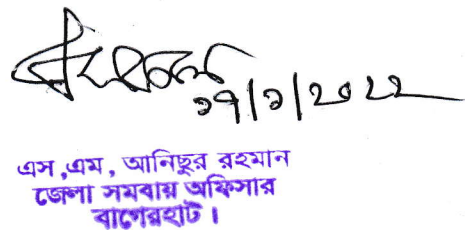 ১৭/১/২০২২
এস,এম, আনিছুর রহমান
জেলা সমবায় অফিসার
বাগেরহাট।